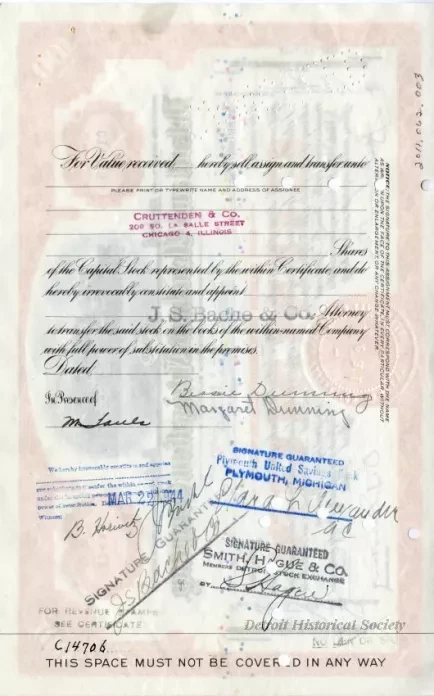 2011.062.003
For Value received hereby sell, assign and transfer unto
PLEASE PRINT OR TYPEWRITE NAME AND ADDRESS OF ASSIGNEE
CRUTTENDEN & CO.
209 SO. LA SALLE STREET
CHICAGO 4, ILLINOIS
Shares
of the Capital Stock represented by the within Certificate, and do
hereby irrevocably constitute and appoint
J. S. Bache & Co. Attorney
to transfer the said stock on the books of the within-named Company
with full power of substitution in the premises.
Dated
In Presence of
Bessie Dunning
Margaret Dunning
NOTICE: THE SIGNATURE TO THIS ASSIGNMENT MUST CORRESPOND WITH THE NAME
AS WRITTEN UPON THE FACE OF THE CERTIFICATE, IN EVERY PARTICULAR, WITHOUT
ALTERATION OR ENLARGEMENT, OR ANY CHANGE WHATEVER
SIGNATURE GUARANTEED
Plymouth United Savings Bank
PLYMOUTH, MICHIGAN
We hereby irrevocably constitute and appoint
MAR 25 1944
Witness:
B. Horwitz
SIGNATURE GUARANTEED
J.S. Bache & Co
SIGNATURE GUARANTEED
SMITH, HAGUE & CO.
MEMBERS DETROIT STOCK EXCHANGE
BY S. Hague
FOR REVENUE STAMPS
SEE CERTIFICATE
Detroit Historical Society
C14706
THIS SPACE MUST NOT BE COVERED IN ANY WAY